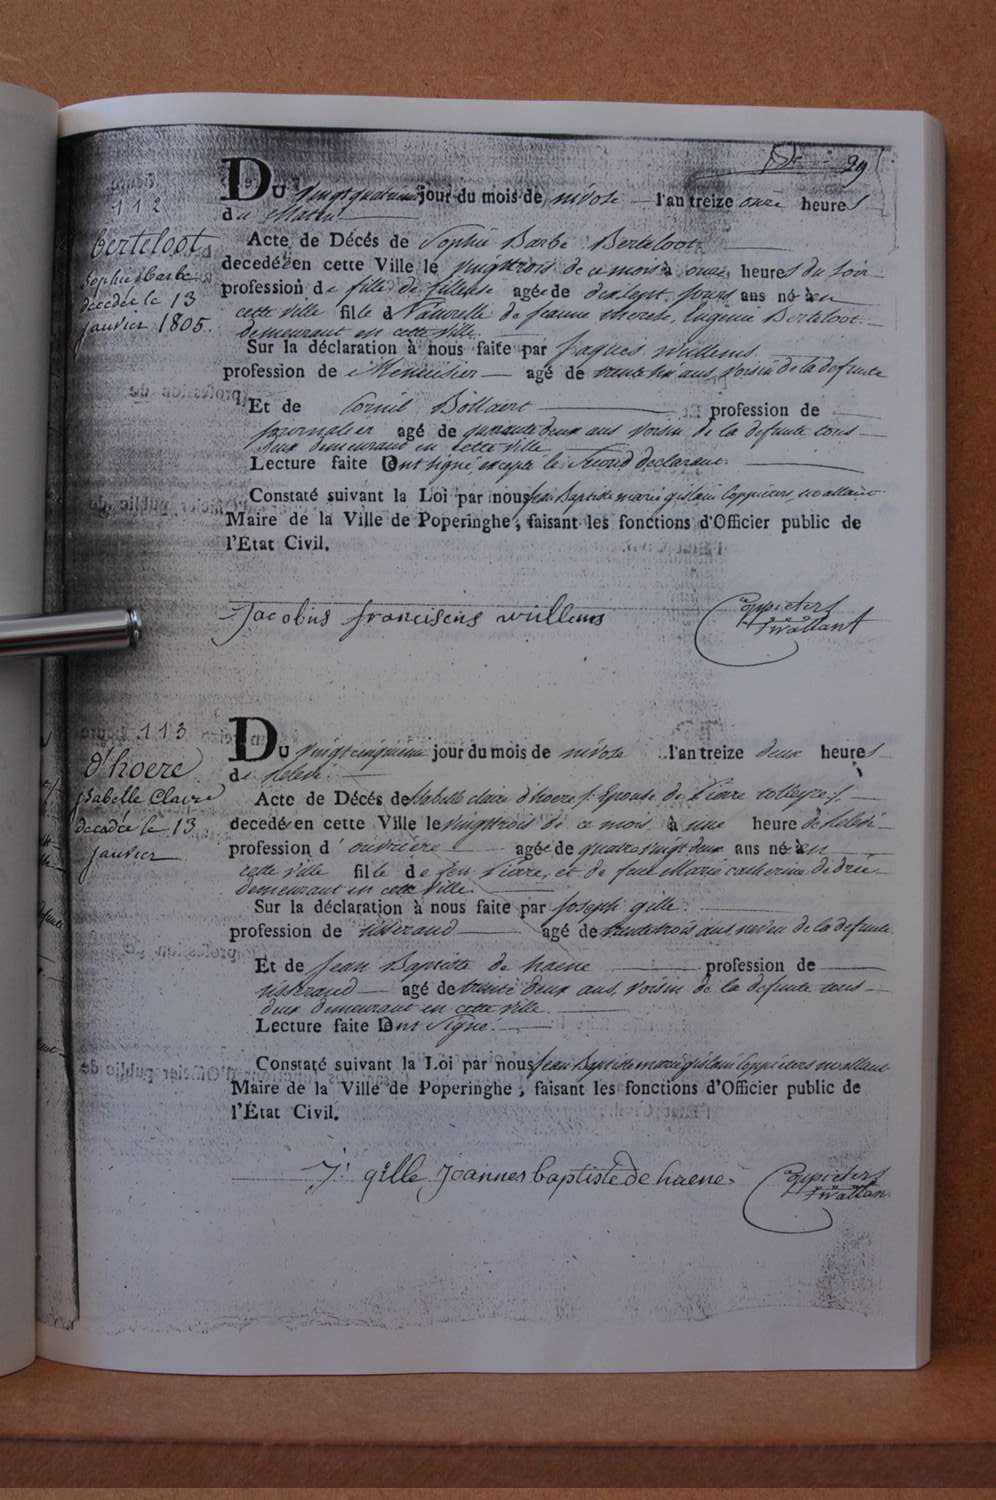 29
112
berteloot
Sophie Barbe
decedée le 13
janvier 1805.
Du vingtquatrieme jour du mois de nivose l'an treize onze heures
du Matin
Acte de Décés de Sophie Barbe Berteloot
decedé en cette Ville le vingttrois de ce mois à onze heures du soir
profession de fille de fileuse agée de dixsept jours ans né à en
cette ville fille d Naturelle de jeanne therese Eugenie Berteloot
demeurant en cette ville.
Sur la déclaration à nous faite par jaques willems
profession de Menusier agé de trente six ans, voisin de la defunte
Et de Cornil Bollaert profession de
journalier agé de quarante deux ans voisin de la defunte tous
deux demeurant en cette ville
Lecture faite Ont signé excepté le second declarant.
Constaté suivant la Loi par nous Jean Baptiste marie gislain Coppieters wallant
Maire de la Ville de Poperinghe, faisant les fonctions d'Officier public de
l'Etat Civil.
Jacobus franciscus willems
Coppieters
Wallant
113
d'hoere
isabelle Claire
decedée le 13
janvier
Du vingtcinquieme jour du mois de nivose l'an treize deux heures
de Relevée
Acte de Décés de Isabelle claire d'hoere Epouse de Piere
decedé en cette Ville le vingttrois de ce mois à une heure de Relevé
profession d' ouvriere agée de quatre vingt deux ans né à en
cette ville fille de feu Piere, et de feue Marie catherine
demeurant en cette ville.
Sur la déclaration à nous faite par joseph gille
profession de tisserand agé de trente trois ans, neveu de la defunte
Et de jean Baptiste de haene profession de
tisserand agé de trente deux ans, voisin de la defunte tous
deux demeurant en cette ville
Lecture faite Ont signé.
Constaté suivant la Loi par nous Jean Baptiste marie gislain Coppieters wallant
Maire de la Ville de Poperinghe, faisant les fonctions d'Officier public de
l'État Civil.
J: gille joannes baptiste de haene
Coppieters
Wallan